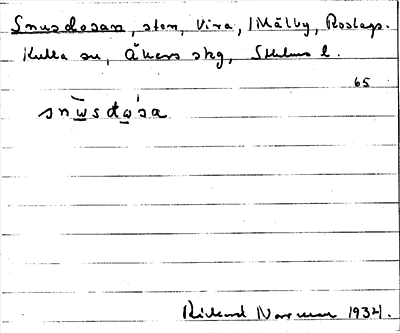 Snusdosan, sten, Vira, Mälby, Roslags-
Kulla sn, Åkers skg, Sthlms l.
65
snùsdósa
Rickard Norrman 1934.